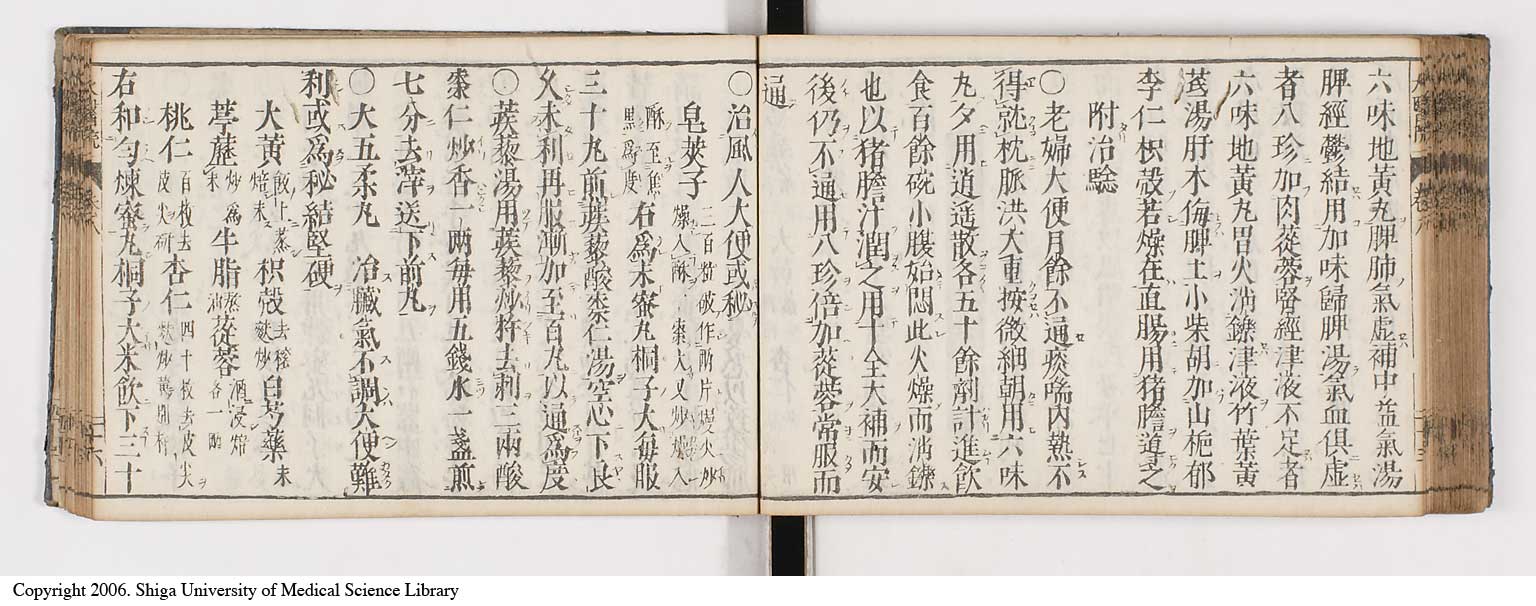 六味地黃丸脾肺氣虛補中益氣湯
脾經鬱結用加味歸脾湯氣血俱虛
者八珍加肉蓯蓉腎經津液不足者
六味地黃丸胃火消鑠津液竹葉黃
芪湯肝木侮脾土小柴胡加山梔郁
李仁枳殼若燥在直腸用猪膽導之
附治驗
〇老婦大便月餘不通痰喘內熱不
得就枕脈洪大重按微細朝用六味
丸夕用逍遥散各五十餘劑計進飲
食百餘碗小腹始悶此火燥而消鑠
也以猪膽汁潤之用十全大補而安
後仍不通用八珍倍加蓯蓉常服而
通
〇治風人大便或秘
皂莢子 二百粒破作兩片慢火炒燥入酥棗大又炒燥入酥至焦黑爲度 右爲末蜜丸桐子大每服
三十丸煎蒺藜酸棗仁湯空心下良
久未利再服漸加至百丸以通爲度
〇蒺藜湯用蒺藜炒杵去刺三兩酸
棗仁炒香一兩每用五錢水一盞煎
七分去滓送下前丸
〇大五柔丸 治臟氣不調大便難
利或爲秘結堅硬
大黃 飯上蒸焙末 枳殼 去穰麩炒 白芍藥 末
葶藶 炒爲末 牛脂 蒸油 蓯蓉 酒浸焙各一兩
桃仁 百枚去皮尖研 杏仁 四十枚去皮尖麩炒黃別研
右和勻煉蜜丸桐子大米飲下三十
Copyright 2006. Shiga University of Medical Science Library